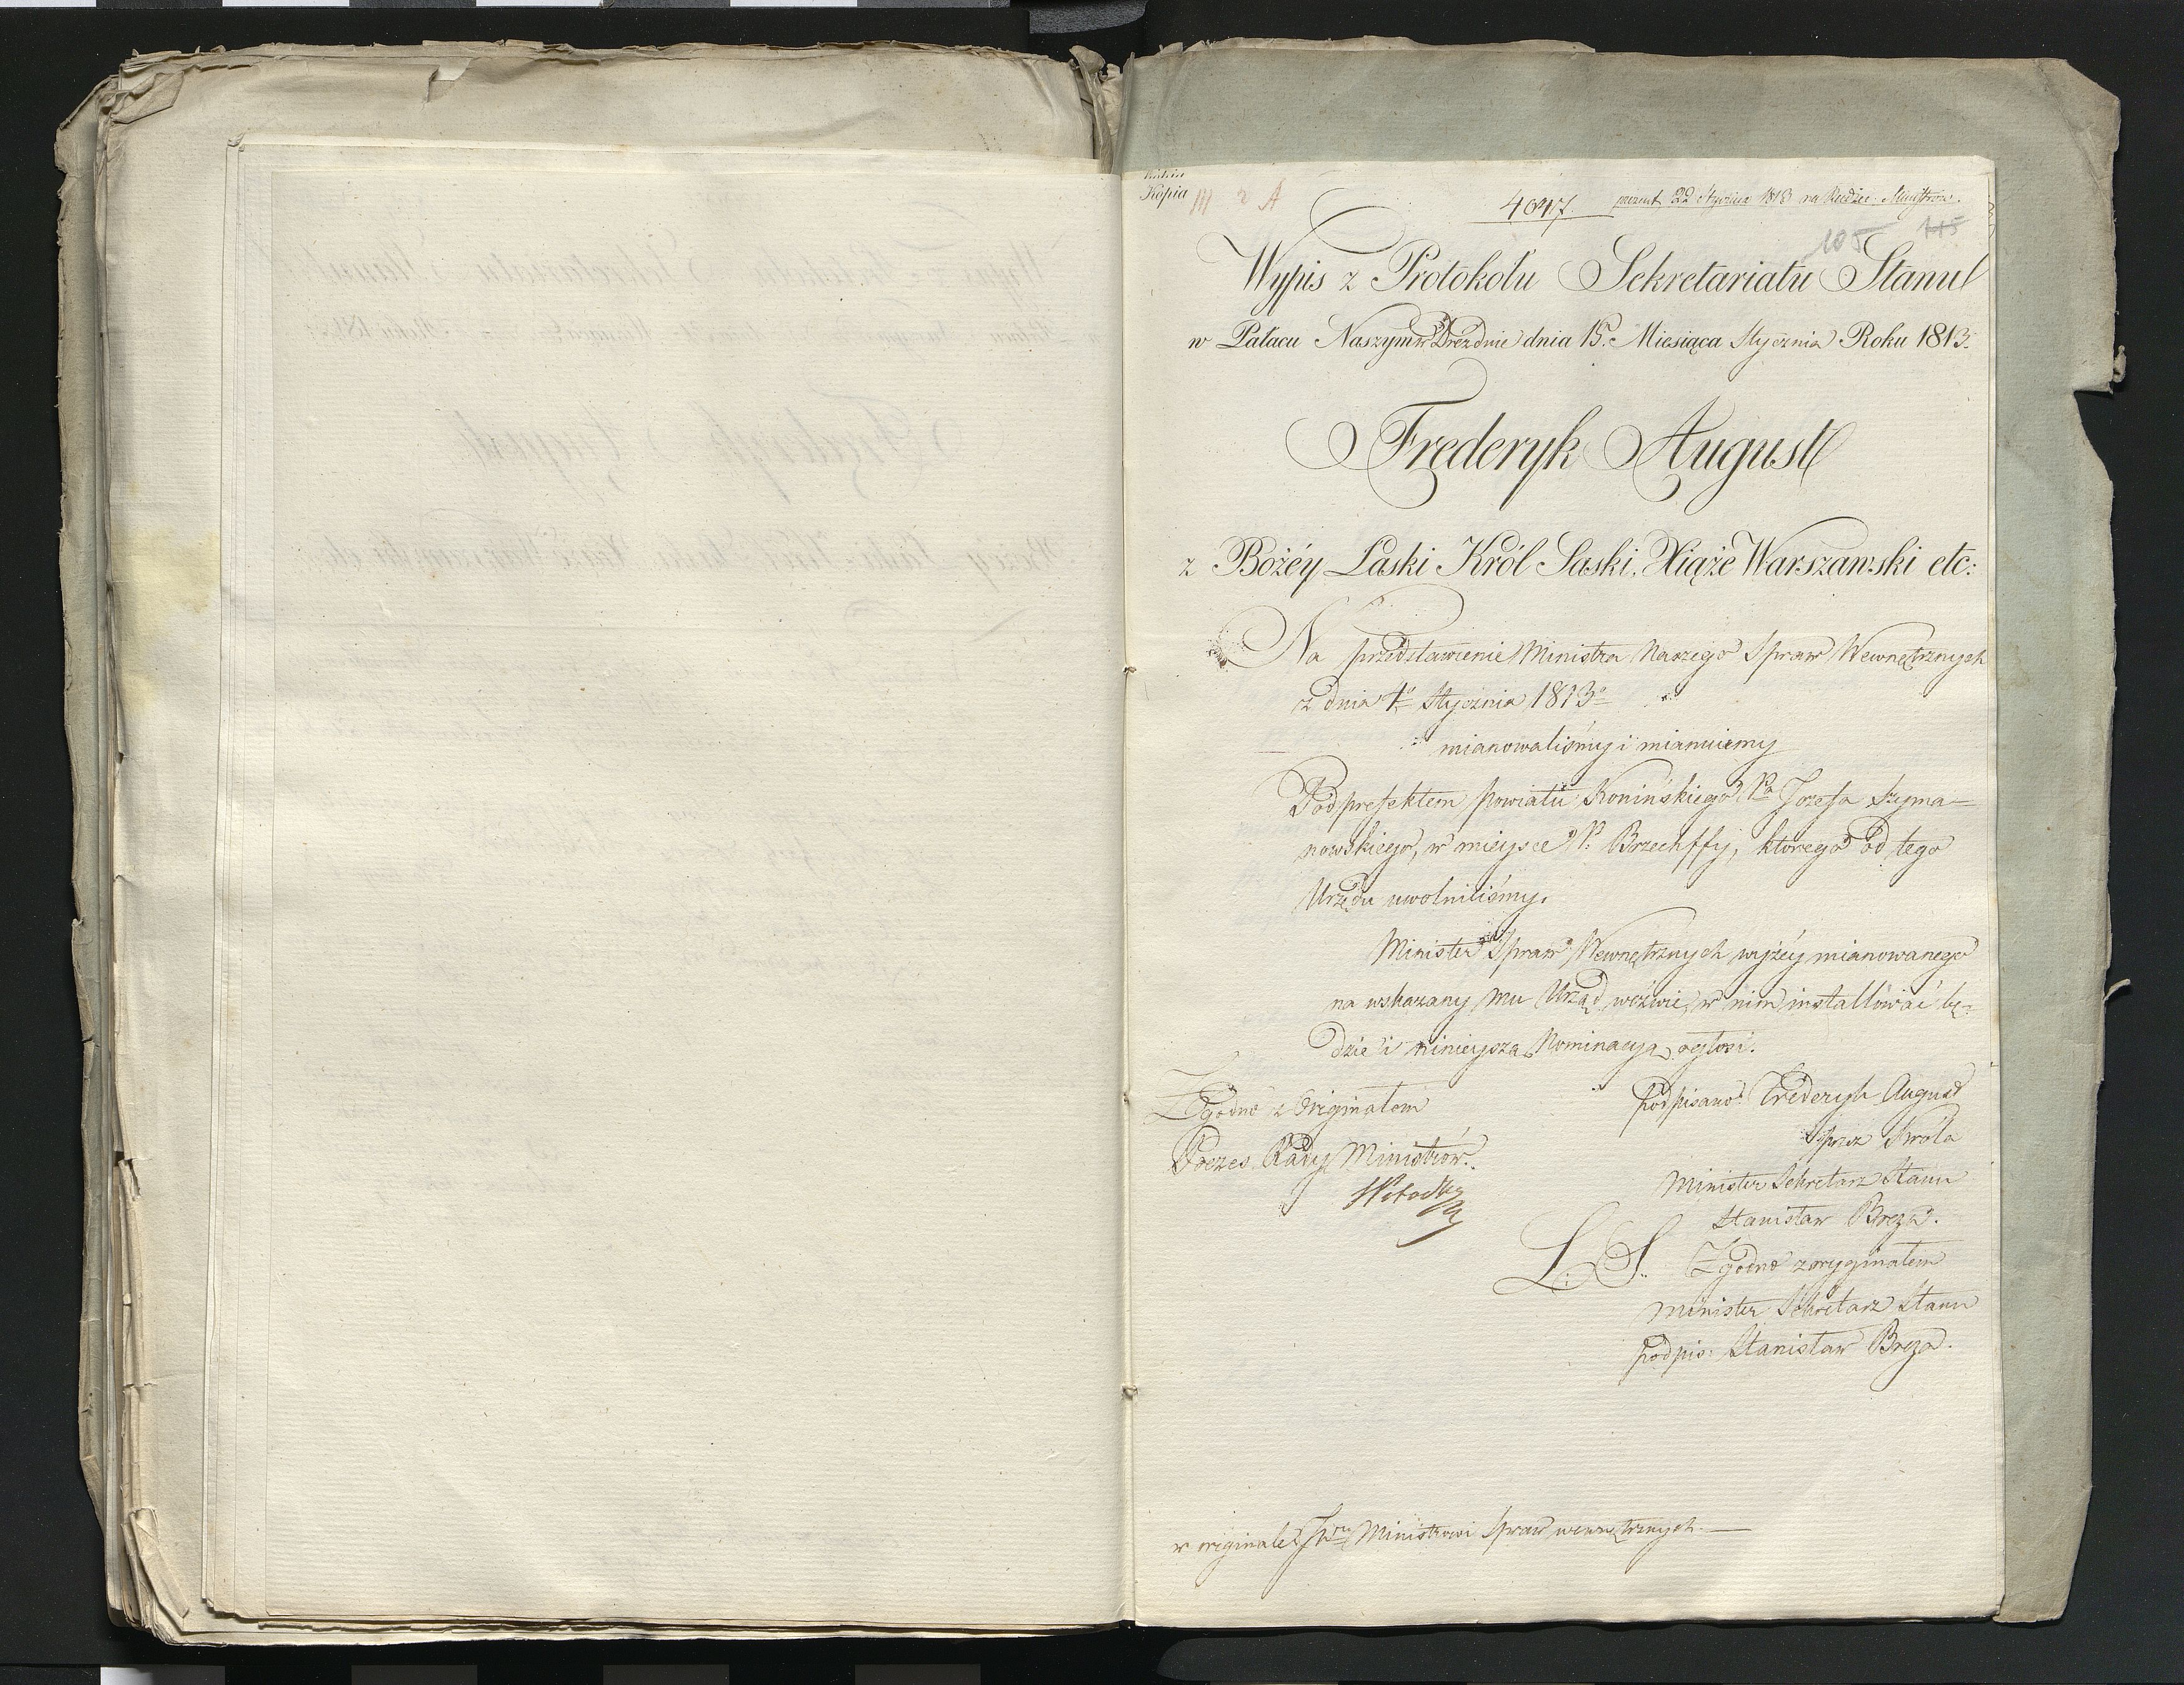 Kopia
III 2 A
4047. prezent 22 Stycznia 1813 na Radzie Ministrów.
105 115
Wypis z Protokołu Sekretariatu Stanu
w Pałacu Naszym w Dreźdnie dnia 15. Miesiąca Stycznia Roku 1813.
Fręderyk August
z Bożéy Łaski Król Saski, Xiąże Warszawski etc:
Na przedstawienie Ministra Naszego Spraw Wewnętrznych
z dnia 4º Stycznia 1813º
mianowaliśmy i mianuiemy
Podprefektem powiatu Konińskiego Pa Jozefa Szyma=
nowskiego, w mieysce P. Brzechffy, ktorego od tego
Urzędu uwolniliśmy.
Minister Spraw Wewnętrznych wyżéy mianowanego
na wskazany mu Urząd wezwie, w nim installować bę=
dzie i ninieyszą Nominacyą ogłosi.
Zgodno z Originałem
Prezes Rady Ministrów.
podpisano: Frederyk August
przez Krola
Minister Sekretarz Stanu
Stanisław Breza.
L. S. Zgodno z oryginałem
Minister Sekretarz Stanu
podpis: Stanisław Breza.
w originale Ministrowi Spraw wewnętrznych. —